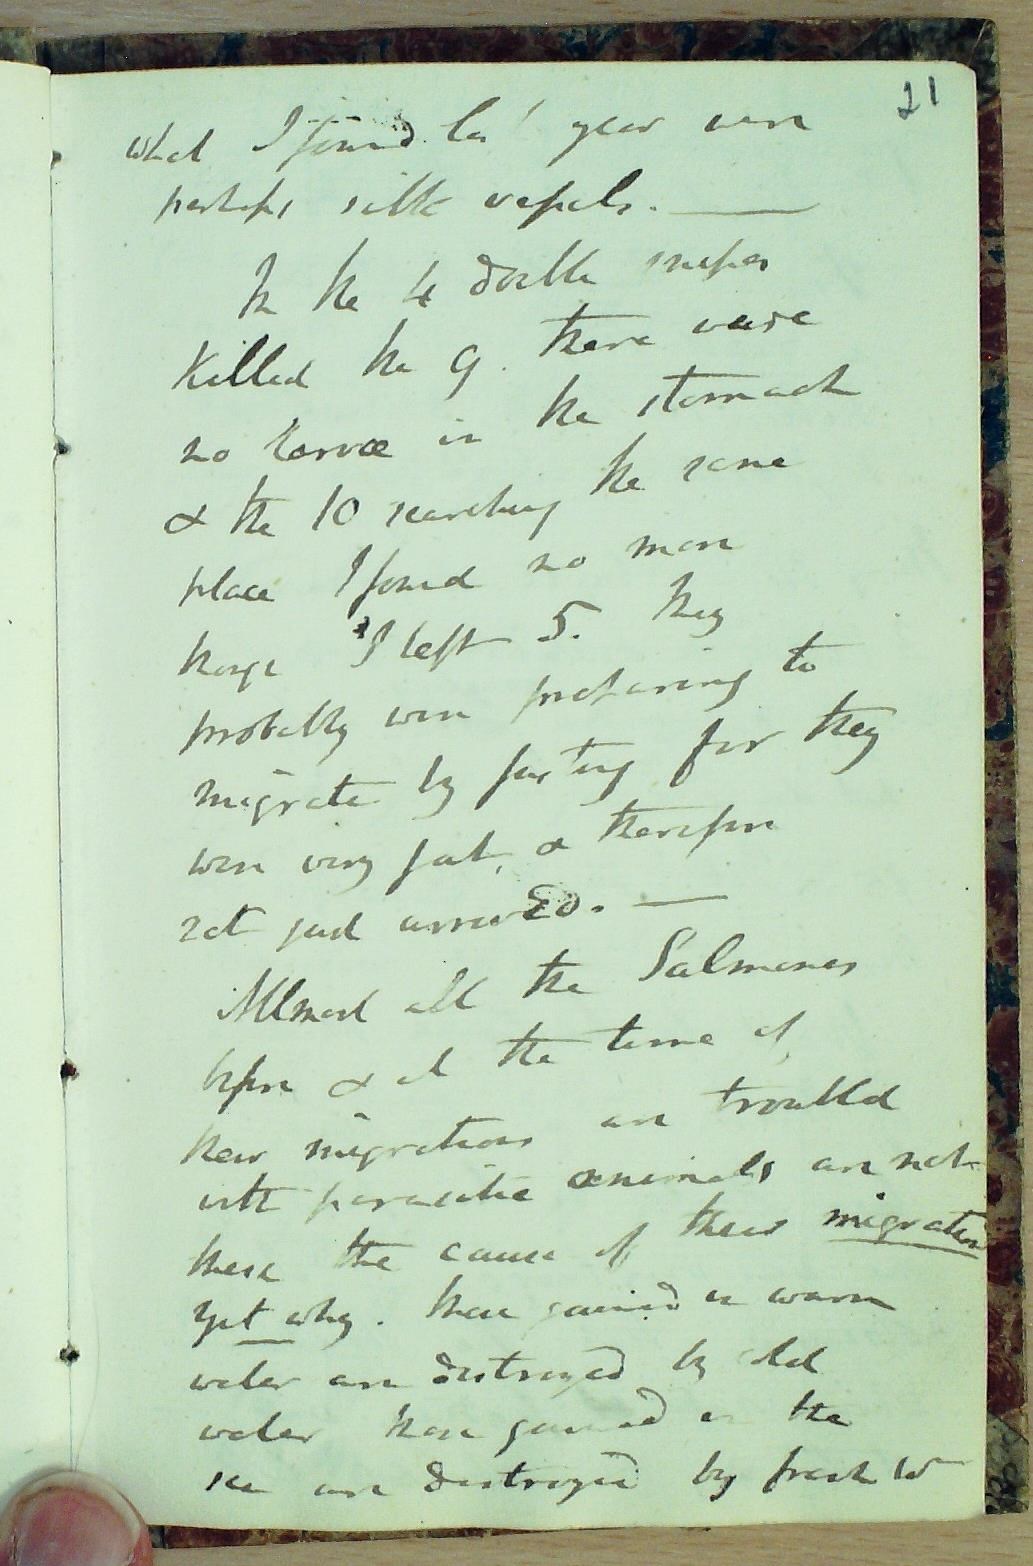 21
what I found las' year were
perhaps silk vessels. ———
In the 4 double snipes
killed the 9. there were
no larvæ in the stomach
& the 10 searching the same
place I found no more
though I left 5. They
probably were preparing to
migrate by fasting for they
were very fat, & therefore
not just arrived. —
Allmost all the Salmones
before & at the time of
their migrations are troubled
with parasitic animals are not
these the cause of their migration
yet why. those gained in warm
water are destroyed by cold
water those gained in the
sea are destroyed by fresh W